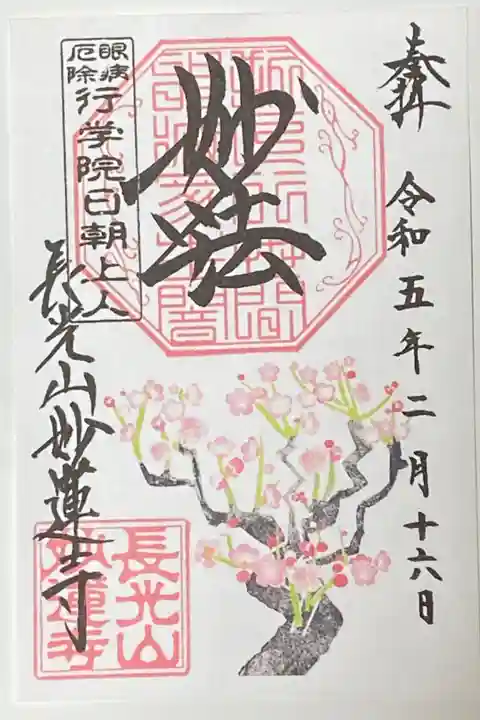 奉拝
令和五年二月十六日
妙法
眼病
厄除
行学院日朝上人
長光山妙蓮寺
長光山
妙蓮寺